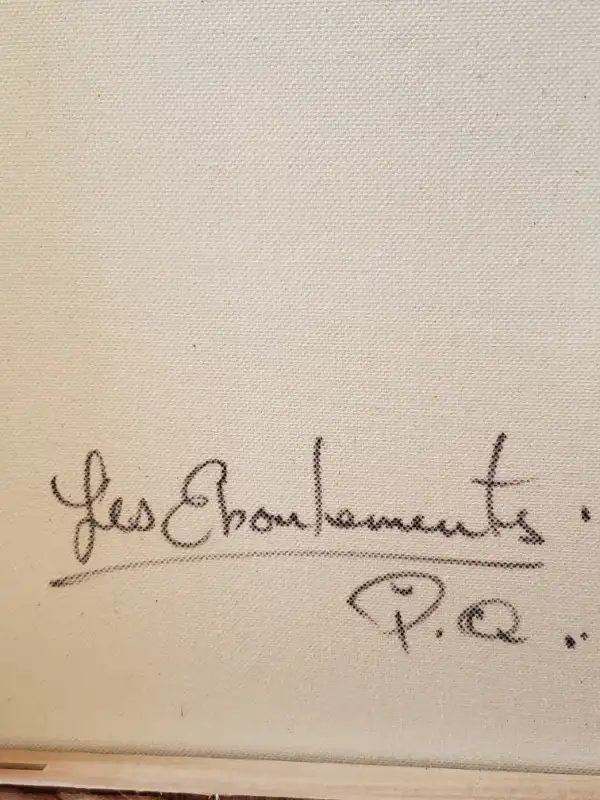 Les Eboulements.
P.Q.